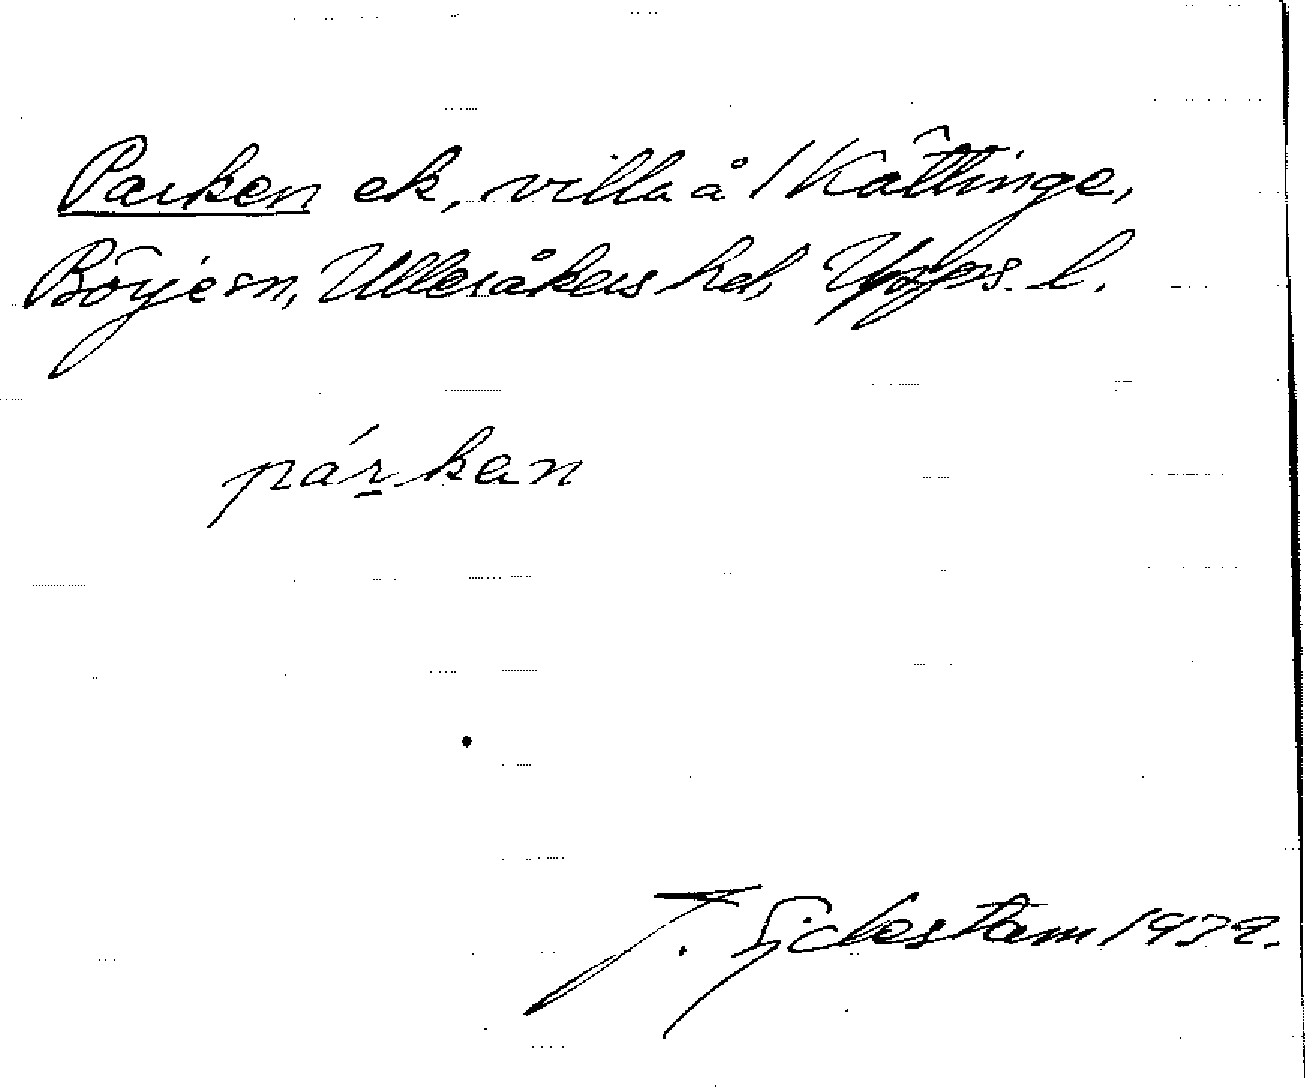 Parken ek, villa å Kättinge,
Börje sn, Ulleråkers hd, Upps. l.
párkan
J. 1932.